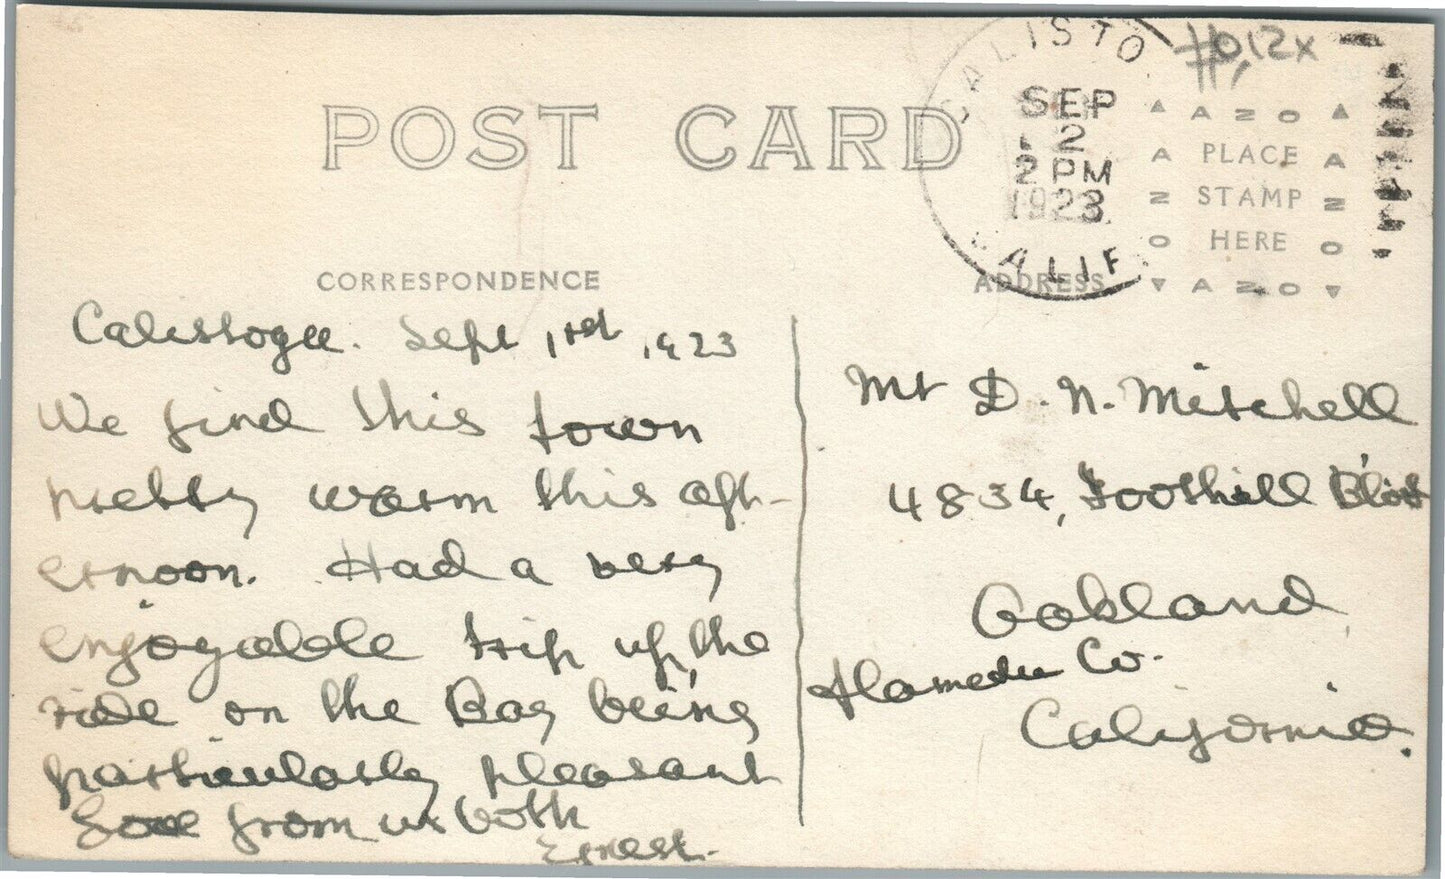 #0,12x
POST CARD
CALISTO
SEP
2
2 PM
1923
CALIF
AZO
PLACE
STAMP
HERE
AZO
CORRESPONDENCE
ADDRESS
Calistoga. Sept 1st, 1923
We find this town
pretty warm this aft-
ernoon. Had a very
enjoyable trip up, the
ride on the Bay being
particularly pleasant
Love from us both
Ernest.
Mr D. N. Mitchell
4834, Foothill Blvd
Oakland,
Alameda Co.
California.